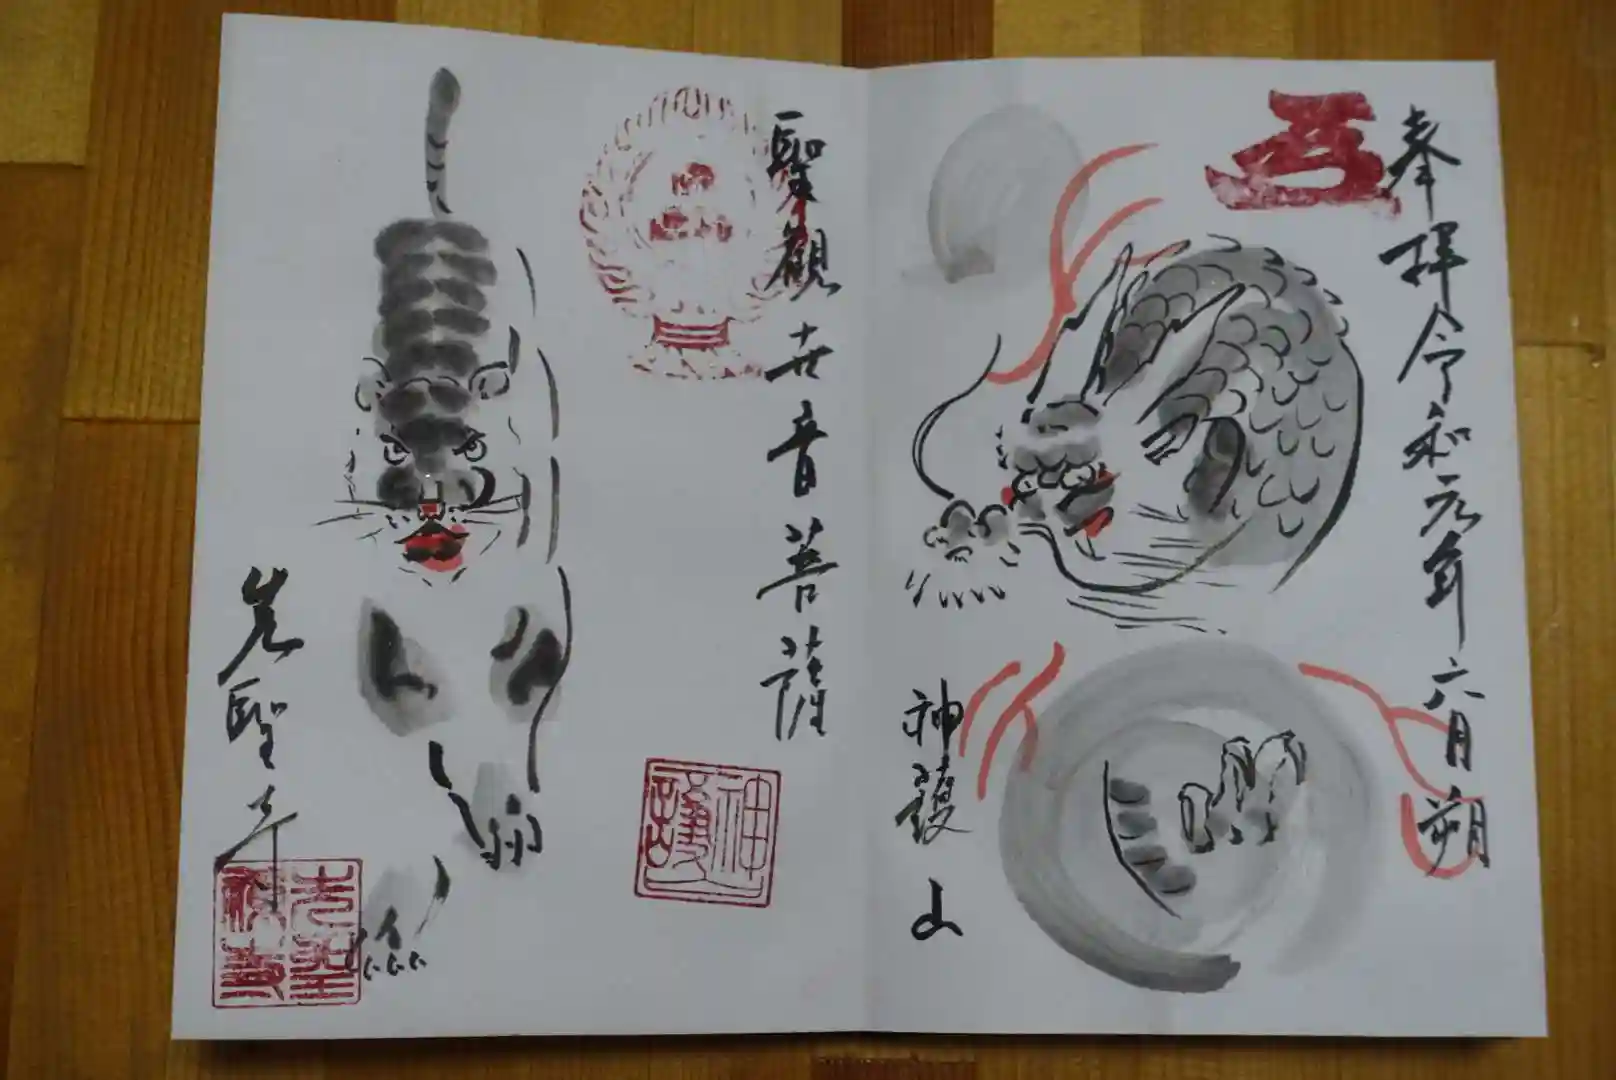 奉拝令和元年六月朔
神護山
聖観世音菩薩
光聖寺
神護